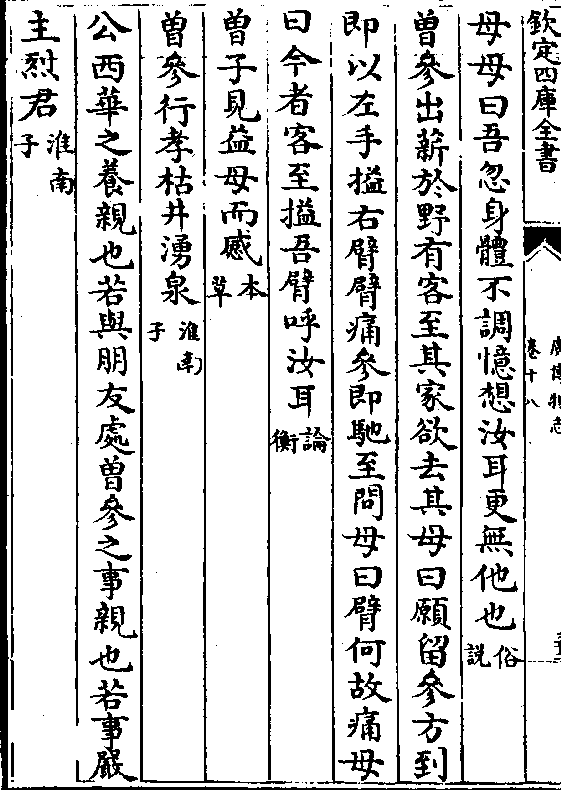 欽定四庫全書
廣博物志
卷十八
母母曰吾忽身體不調憶想汝耳更無他也俗說
曾參出薪於野有客至其家欲去其母曰願留參方到
即以左手搤右臂臂痛參即馳至問母曰臂何故痛母
曰今者客至搤吾臂呼汝耳論衡
曾子見益母而感本草
曾參行孝枯井湧泉淮南子
公西華之養親也若與朋友處曾參之事親也若事嚴
主烈君淮南子